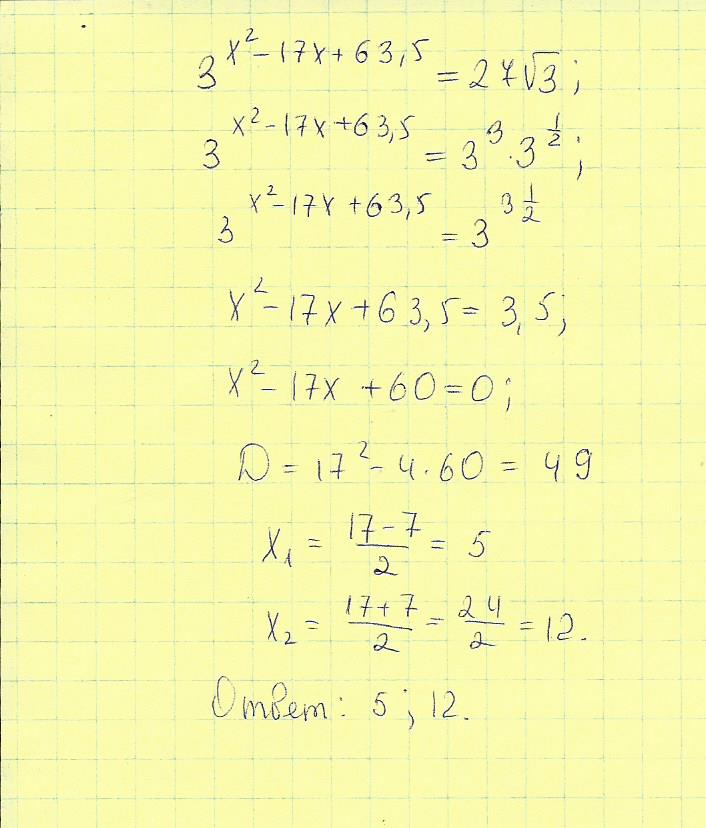 3^(x²-17x+63,5) = 27√3;
3^(x²-17x+63,5) = 3³·3^(1/2);
3^(x²-17x+63,5) = 3^(3 1/2)
x²-17x+63,5 = 3,5;
x²-17x+60=0;
D = 17²-4·60 = 49
x₁ = (17-7)/2 = 5
x₂ = (17+7)/2 = 24/2 = 12.
Ответ: 5; 12.